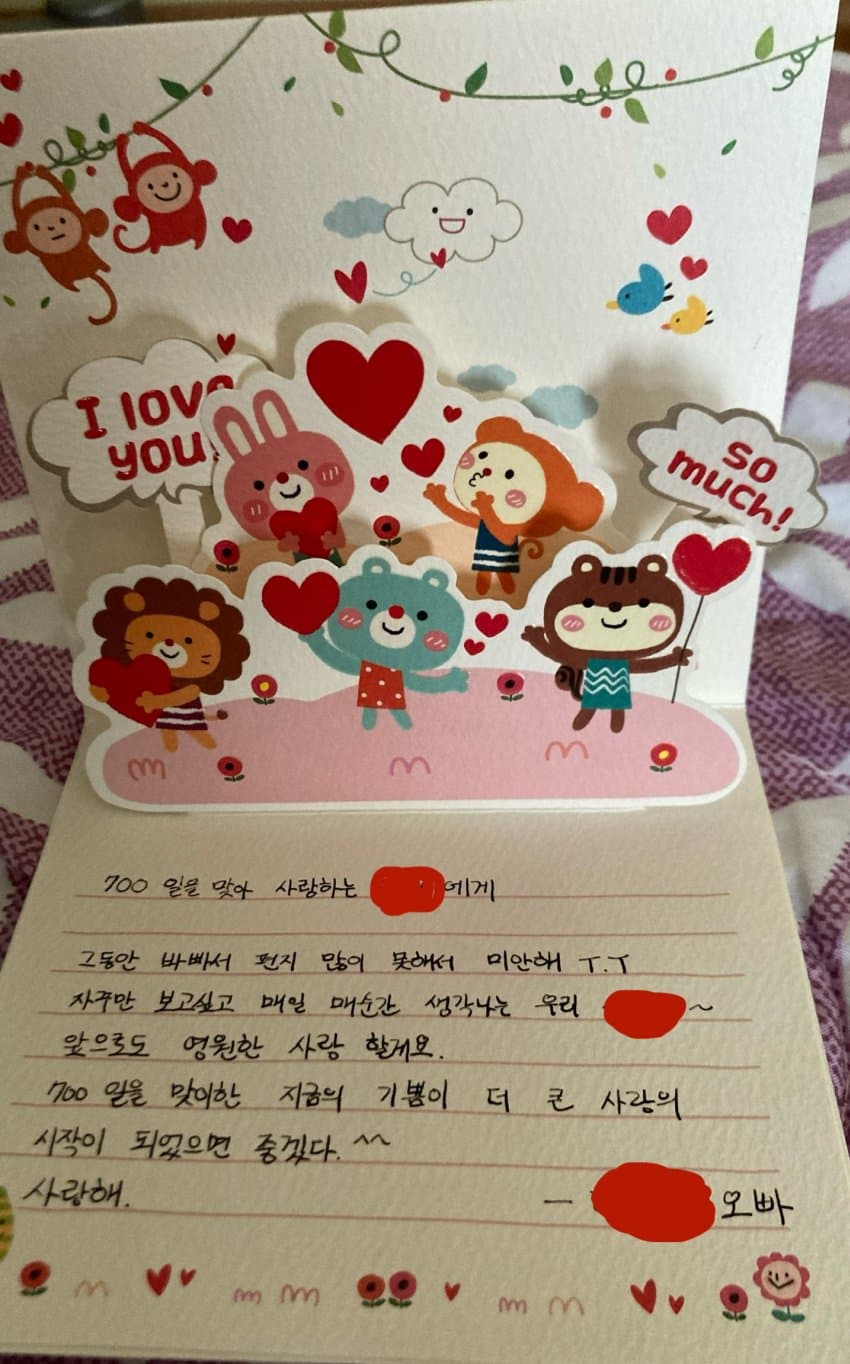 I love
you!
so
much!
700 일을 맞아 사랑하는 에게
그동안 바빠서 편지 많이 못해서 미안해 T.T
자꾸만 보고싶고 매일 매순간 생각나는 우리 ~
앞으로도 영원한 사랑 할게요.
700 일을 맞이한 지금의 기쁨이 더 큰 사랑의
시작이 되었으면 좋겠다. ^^
사랑해. — 오빠